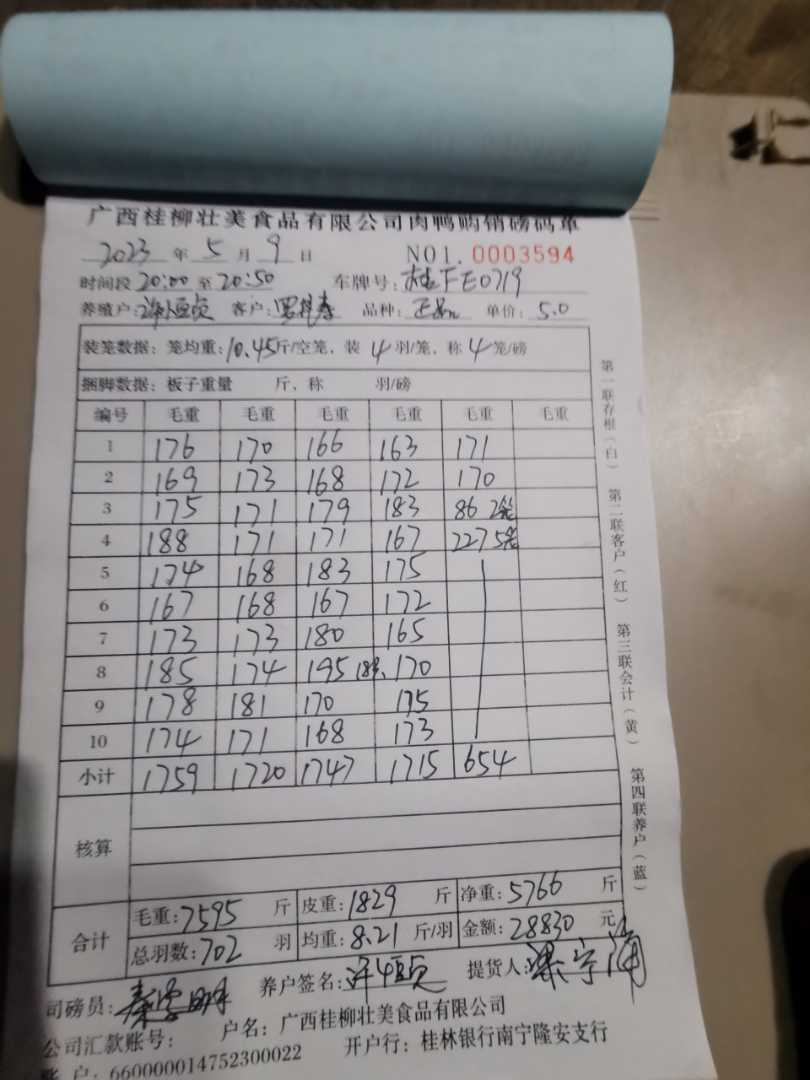 广西桂柳壮美食品有限公司肉鸭购销磅码单
2023 年 5 月 9 日 NO1. 0003594
时间段 20:00 至 20:50 车牌号: 桂FE0719
养殖户: 客户: 品种: 单价: 5.0
装笼数据: 笼均重: 10.45斤/空笼, 装 4 羽/笼, 称 4 笼/磅
捆脚数据: 板子重量 斤, 称 羽/磅
编号 毛重 毛重 毛重 毛重 毛重 毛重
1 176 170 166 163 171
2 169 173 168 172 170
3 175 171 179 183 86 2笼
4 188 171 171 167 227 5笼
5 174 168 183 175
6 167 168 167 172
7 173 173 180 165
8 185 174 195 183. 170
9 178 181 170 175
10 174 171 168 173
小计 1759 1720 1747 1715 654
核算
合计
毛重: 7595 斤 皮重: 1829 斤 净重: 5766 斤
总羽数: 702 羽 均重: 8.21 斤/羽 金额: 28830 元
司磅员: 养户签名: 提货人:
公司汇款账号: 户名: 广西桂柳壮美食品有限公司
账 户: 660000014752300022 开户行: 桂林银行南宁隆安支行
第一联存根(白) 第二联客户(红) 第三联会计(黄) 第四联养户(蓝)